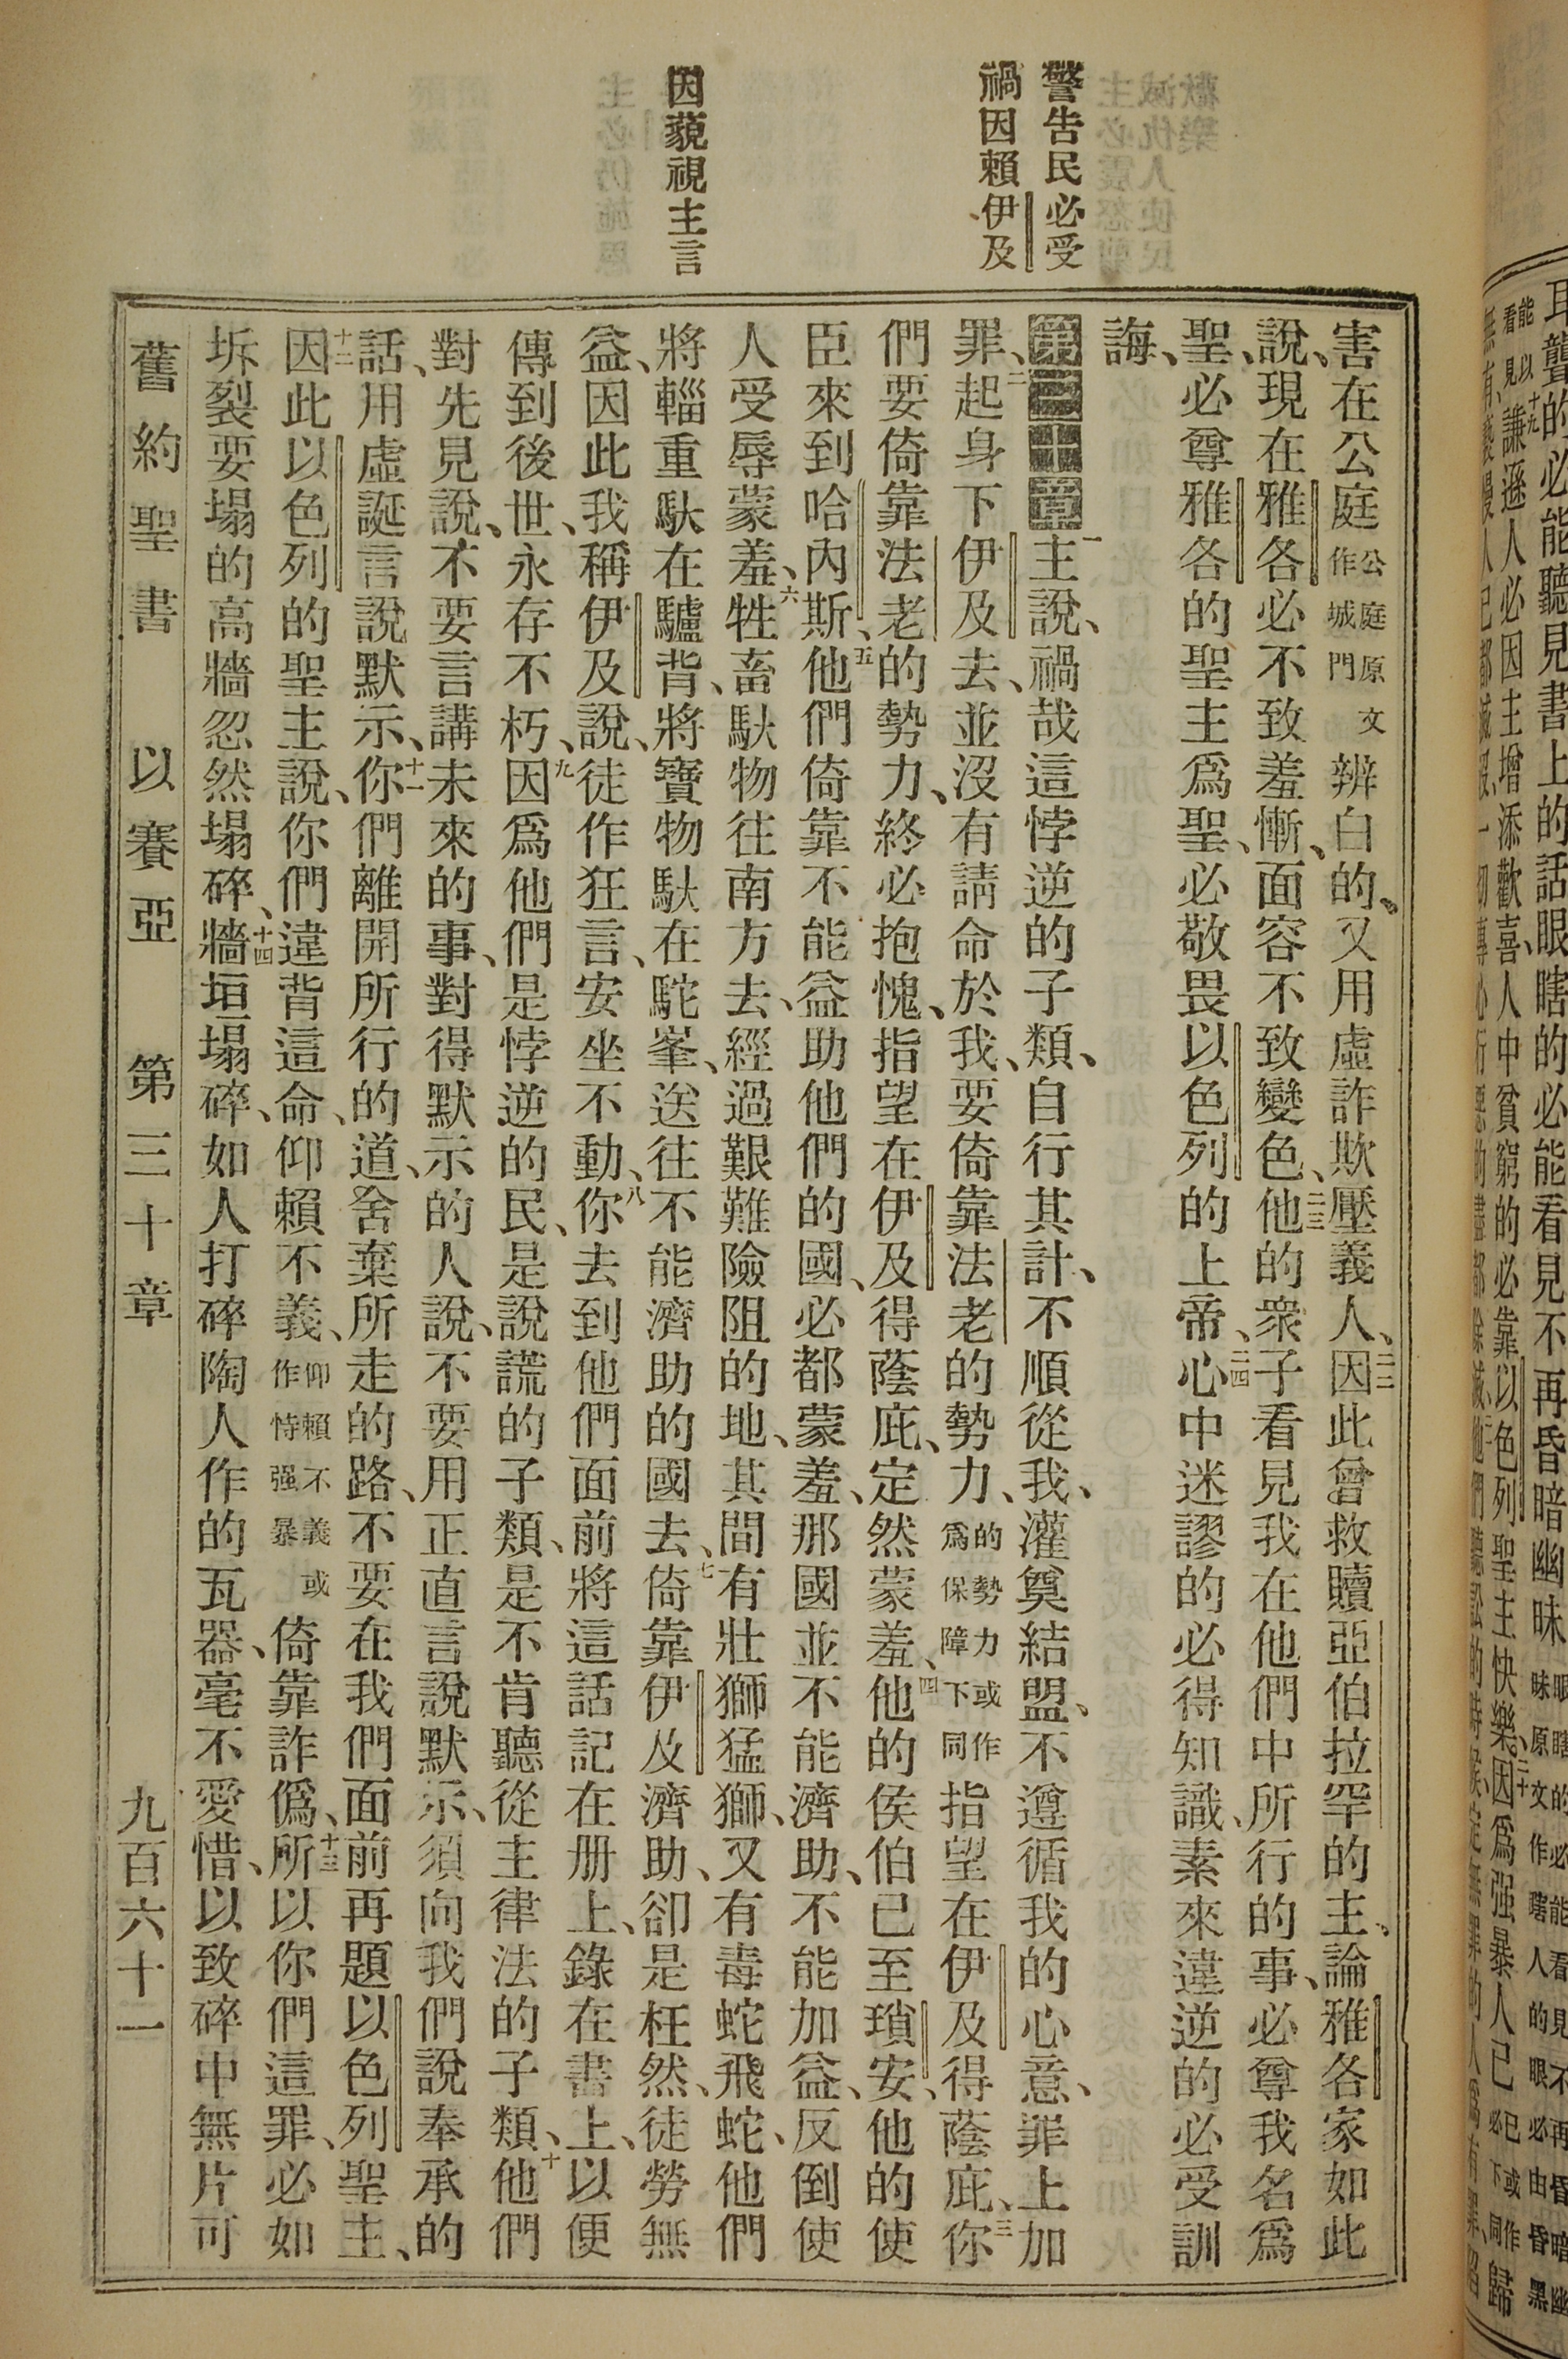 警告民必受
禍因賴伊及
因藐視主言
害在公庭公庭原文作城門辨白的、又用虛詐欺壓義人、二二因此曾救贖亞伯拉罕的主、論雅各家如此
說、現在雅各必不致羞慚、面容不致變色、二三他的衆子看見我在他們中所行的事、必尊我名爲
聖、必尊雅各的聖主爲聖、必敬畏以色列的上帝、二四心中迷謬的必得知識、素來違逆的必受訓
誨、
第三十章一主說、禍哉這悖逆的子類、自行其計、不順從我、灌奠結盟、不遵循我的心意、罪上加
罪、二起身下伊及去、並沒有請命於我、要倚靠法老的勢力、的勢力或作爲保障下同指望在伊及得蔭庇、三你
們要倚靠法老的勢力、終必抱愧、指望在伊及得蔭庇、定然蒙羞、四他的侯伯已至瑣安、他的使
臣來到哈內斯、五他們倚靠不能益助他們的國、必都蒙羞、那國並不能濟助、不能加益、反倒使
人受辱蒙羞、六牲畜馱物往南方去、經過艱難險阻的地、其間有壯獅猛獅、又有毒蛇飛蛇、他們
將輜重馱在驢背、將寶物馱在駝峯、送往不能濟助的國去、七倚靠伊及濟助、卻是枉然、徒勞無
益、因此我稱伊及說、徒作狂言、安坐不動、八你去到他們面前將這話記在册上、錄在書上、以便
傳到後世、永存不朽、九因爲他們是悖逆的民、是說謊的子類、是不肯聽從主律法的子類、十他們
對先見說、不要言講未來的事、對得默示的人說、不要用正直言說默示、須向我們說奉承的
話、用虛誕言說默示、十一你們離開所行的道、舍棄所走的路、不要在我們面前再題以色列聖主、
十二因此以色列的聖主說、你們違背這命、仰賴不義、仰賴不義或作恃强暴倚靠詐僞、十三所以你們這罪、必如
坼裂要塌的高牆忽然塌碎、十四牆垣塌碎、如人打碎陶人作的瓦器、毫不愛惜、以致碎中無片可
舊約聖書　以賽亞　第三十章　九百六十一